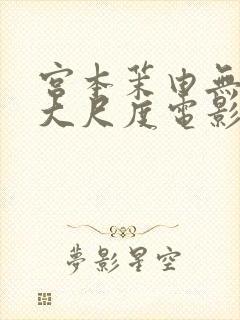 宮本茉由無
大尺度電影
夢影星空